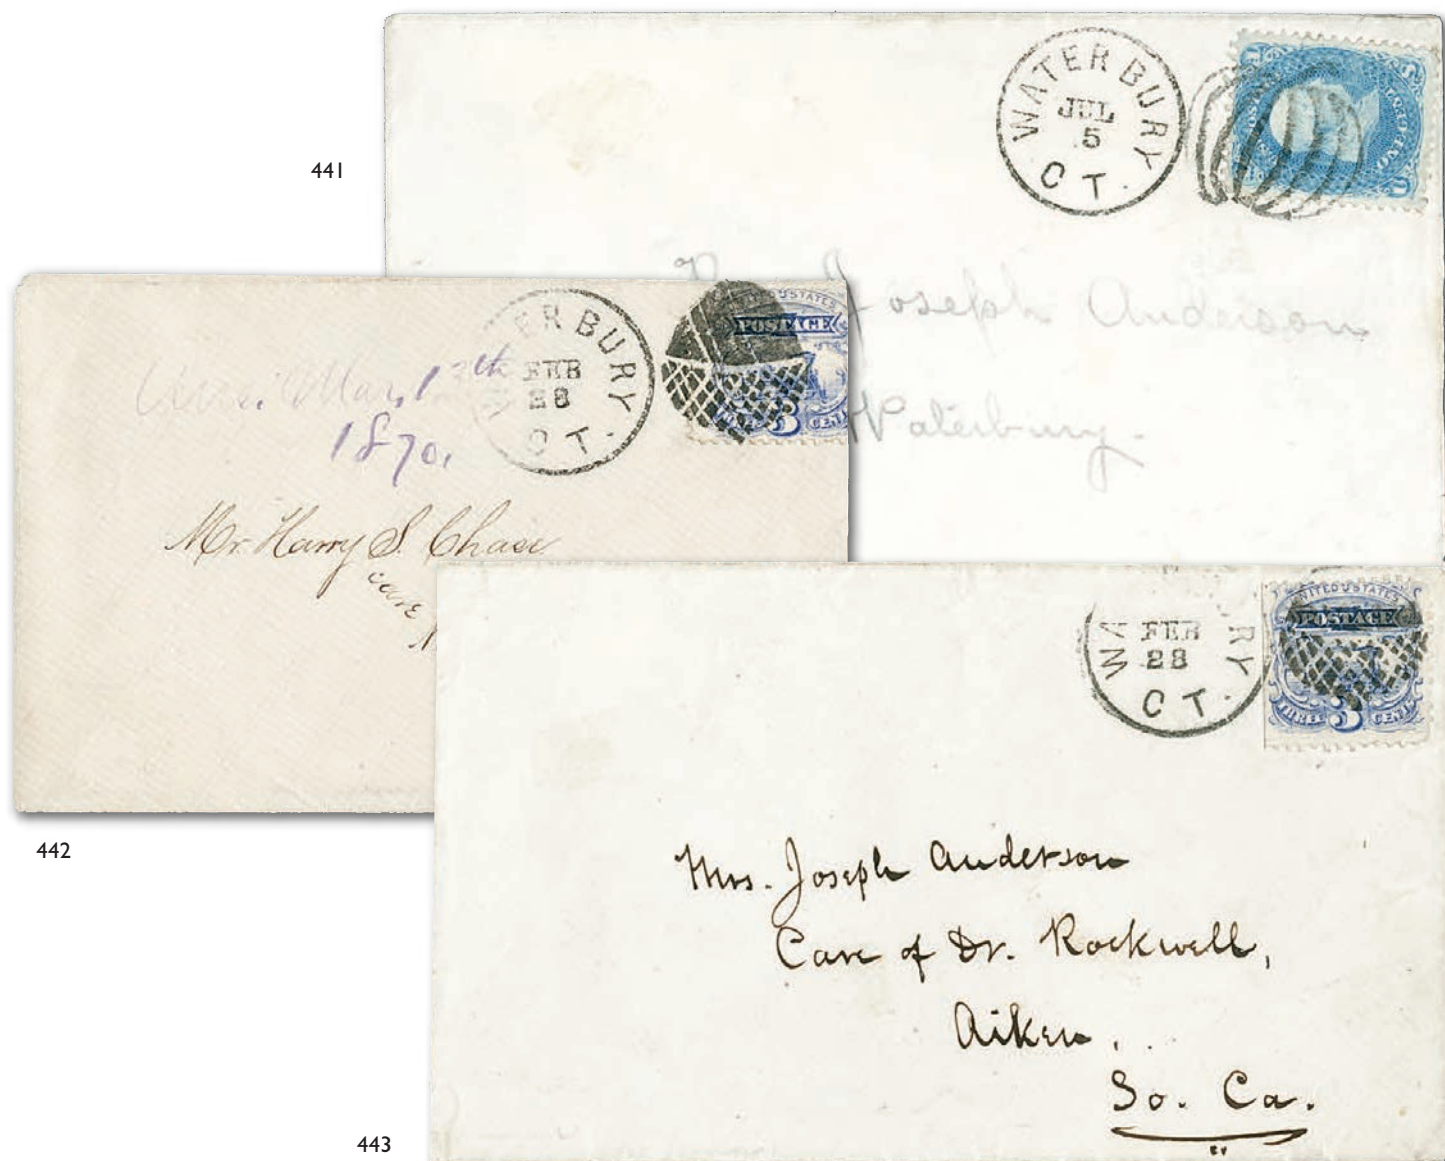 441
WATERBURY
JUL
5
CT.
ONE
Joseph Anderson
Waterbury.
442
ERBURY
FEB
28
CT.
UNITED STATES
POSTAGE
3 CENTS
Mar. 1
1870.
Mr. Harry S. Chase
care
443
WA RY
FEB
28
CT.
UNITED STATES
POSTAGE
THREE 3 CENTS
Mrs. Joseph Anderson
Care of Dr. Rockwell,
Aiken,
So. Ca.